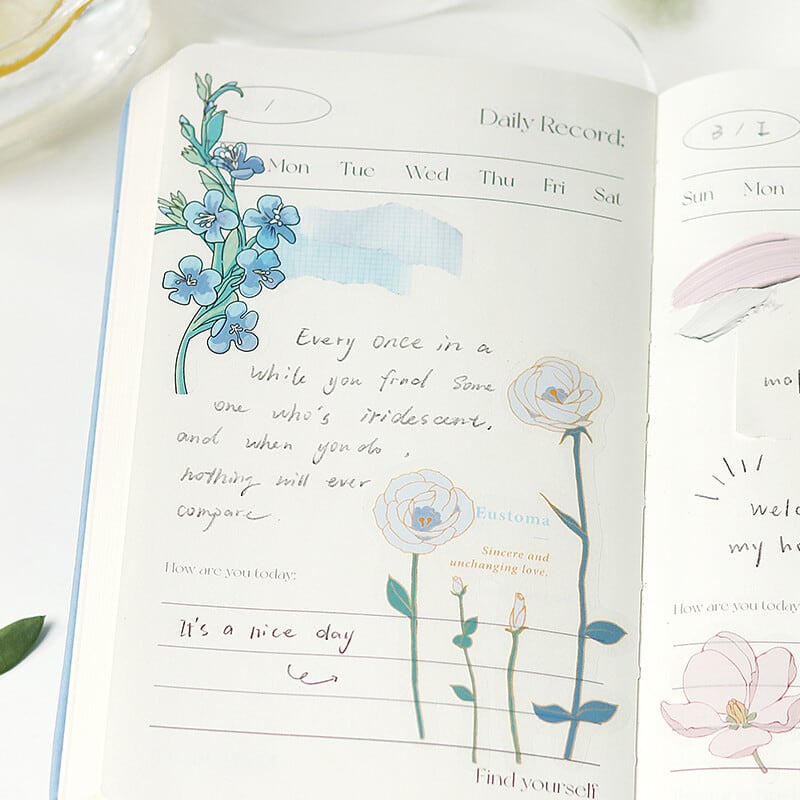 /
Daily Record:
Mon Tue Wed Thu Fri Sat
Every once in a
while you find some
one who's iridescent,
and when you do,
nothing will ever
compare.
Eustoma
Sincere and
unchanging love.
How are you today:
It's a nice day
Find yourself
3 / I
Sun Mon
my
How are you today: